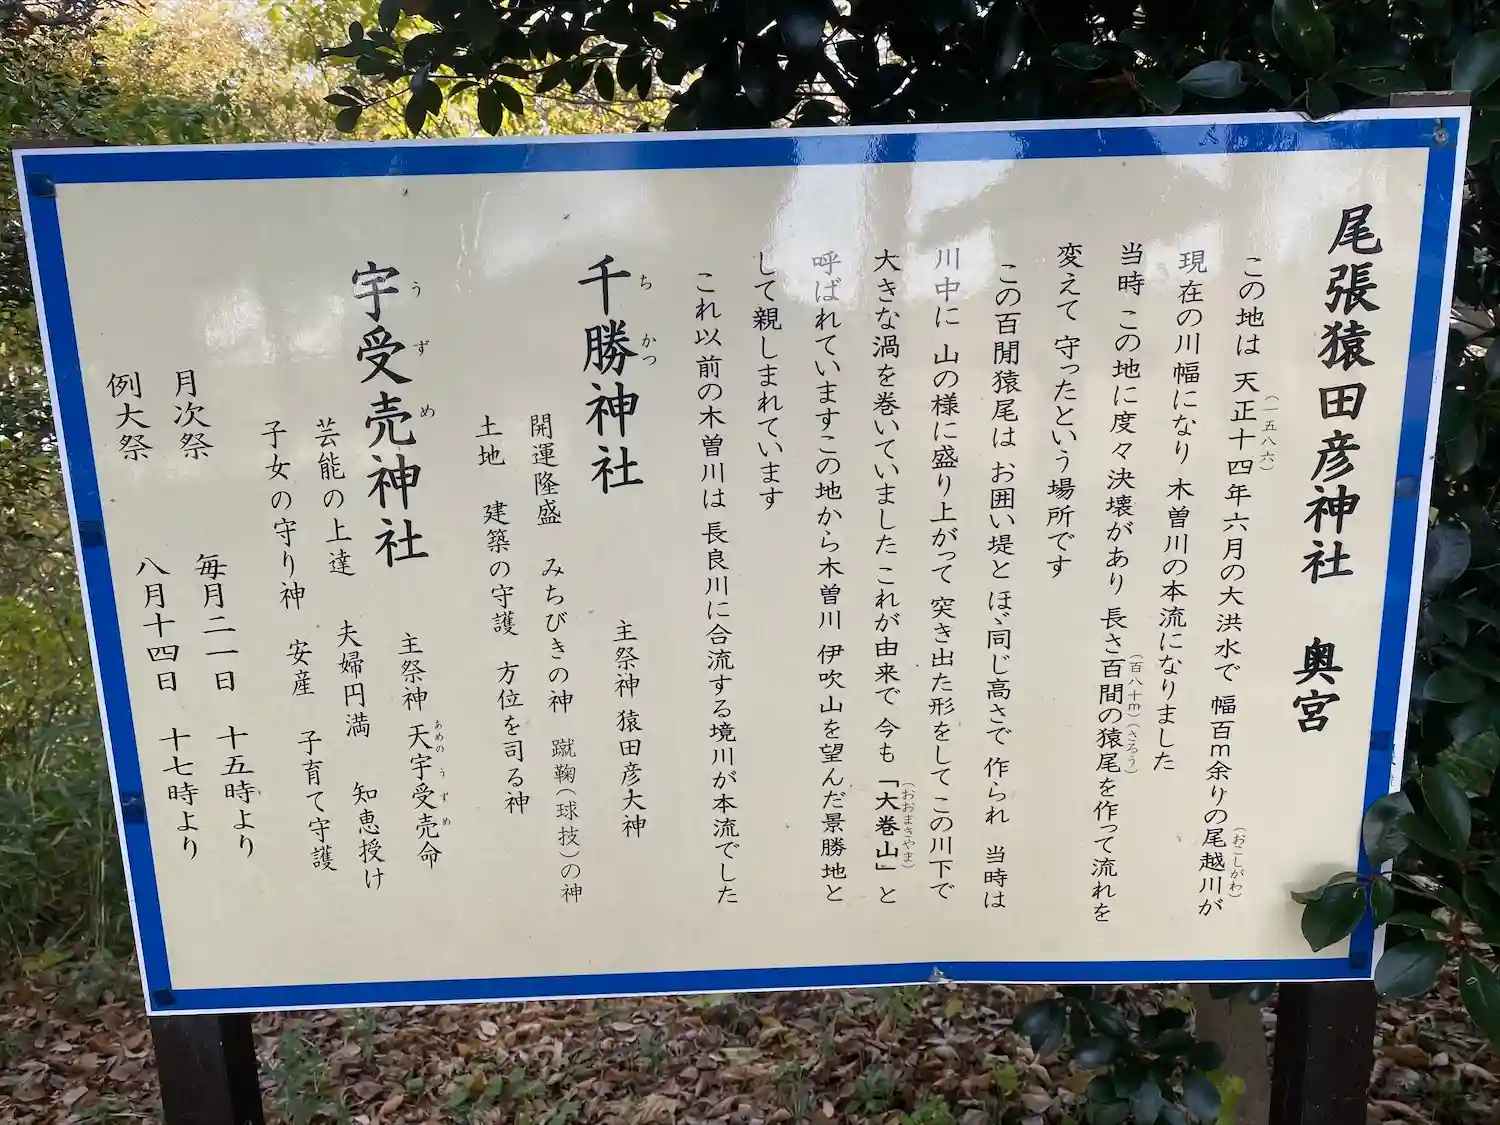 尾張猿田彦神社 奥宮
この地は 天正十四年(一五八六)六月の大洪水で 幅百m余りの尾越川(おこしがわ)が
現在の川幅になり 木曽川の本流になりました
当時 この地に度々決壊があり 長さ百間(百八十m)の猿尾(さろう)を作って流れを
変えて 守ったという場所です
この百間猿尾は お囲い堤と ほゞ同じ高さで 作られ 当時は
川中に 山の様に盛り上がって 突き出た形をして この川下で
大きな渦を巻いていました これが由来で 今も「大巻山」(おおまきやま)と
呼ばれていますこの地から木曽川 伊吹山を望んだ景勝地と
して親しまれています
これ以前の木曽川は 長良川に合流する境川が本流でした
千勝神社 ちかつ
主祭神 猿田彦大神
開運隆盛 みちびきの神 蹴鞠(球技)の神
土地 建築の守護 方位を司る神
宇受売神社 うずめ
主祭神 天宇受売命 あめのうずめ
芸能の上達 夫婦円満 知恵授け
子女の守り神 安産 子育て守護
月次祭 毎月二一日 十五時より
例大祭 八月十四日 十七時より